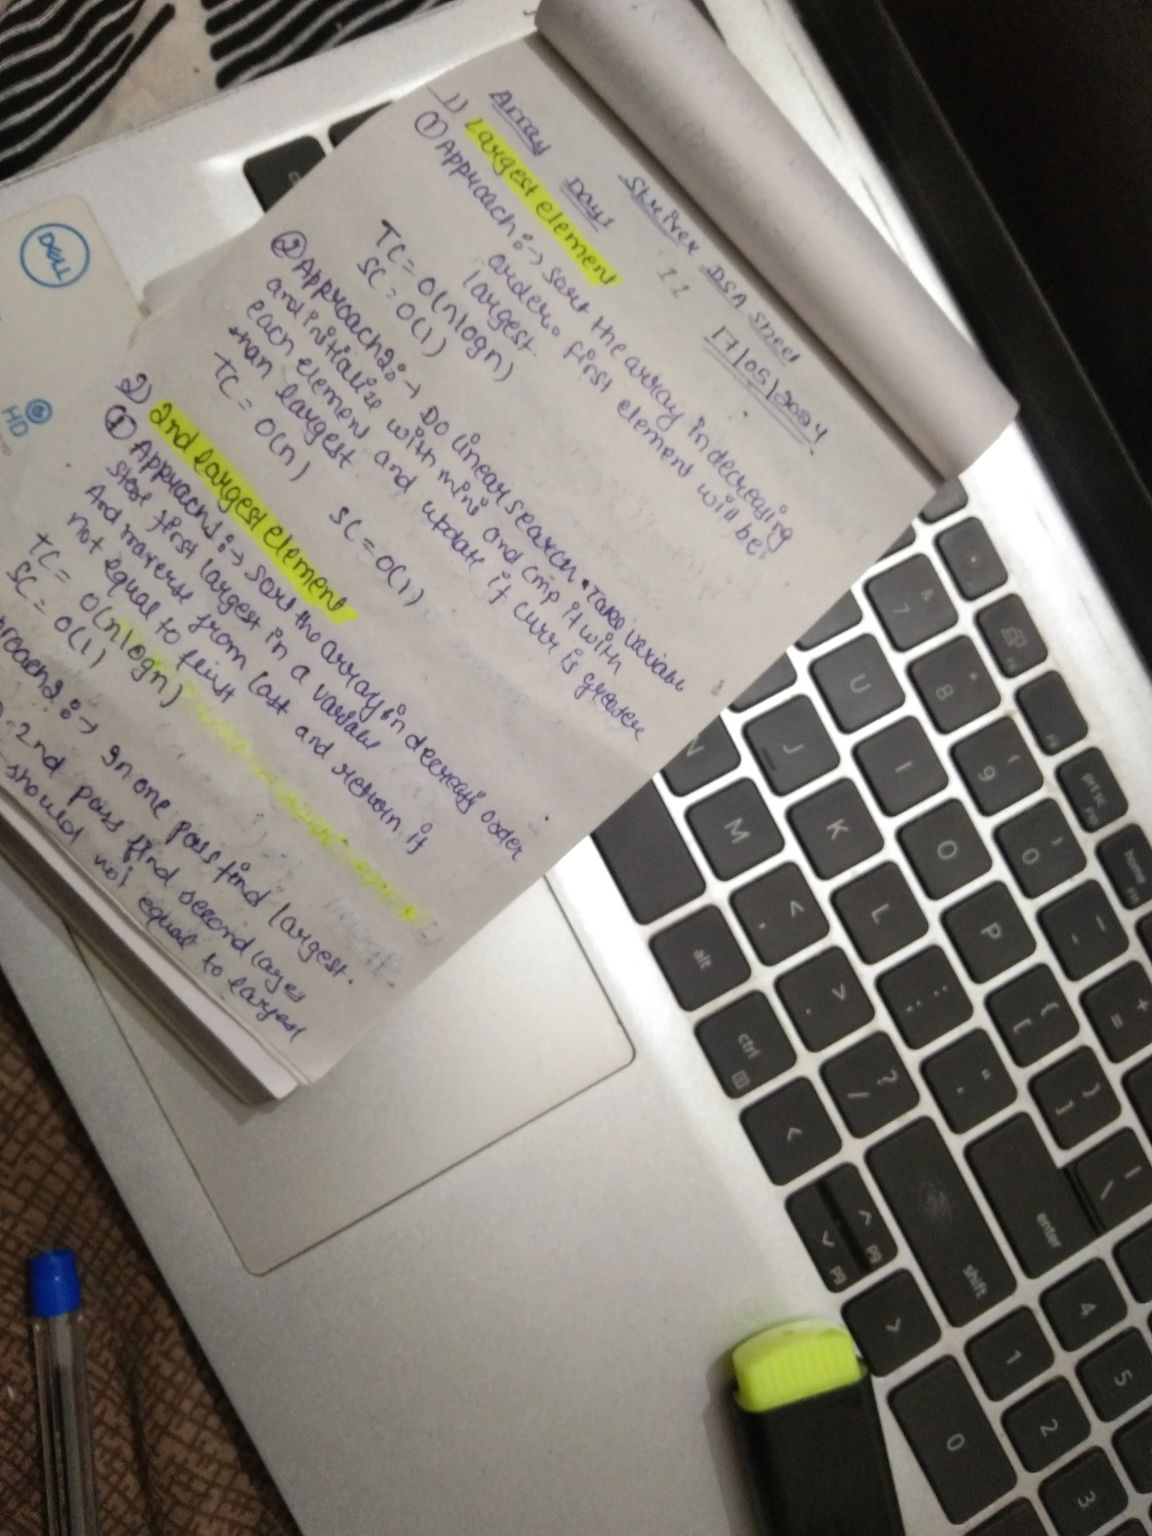 Striver DSA Sheet
17/05/2024
Array
Day1
1) Largest element
① Approach :→ sort the array in decreasing
order. first element will be
largest.
TC = O(nlogn)
SC = O(1)
② Approach2 :→ Do linear search. Take variable
and initialize with mini and cmp it with
each element and update if curr is greater
than largest
TC = O(n)
SC = O(1)
2) 2nd largest element
① Approach1 :→ sort the array in decreasing order
first largest in a variable
And traverse from last and return if
not equal to first
TC = O(nlogn)
SC = O(1)
proach2 :→ In one pass find largest.
2nd pass find second larges
should not equal to largest
DELL
HD
7 &
8 *
9 (
0 )
- _
= +
U
I
O
P
[ {
] }
\ |
J
K
L
; :
' "
enter
N
M
, <
. >
/ ?
shift
alt
ctrl
prt sc
F10
home
F11
pg
pg
4
5
1
2
3
0